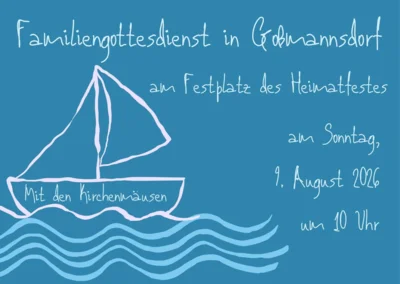 Familiengottesdienst in Goßmannsdorf
am Festplatz des Heimatfestes
am Sonntag,
9. August 2026
um 10 Uhr
Mit den Kirchenmäusen